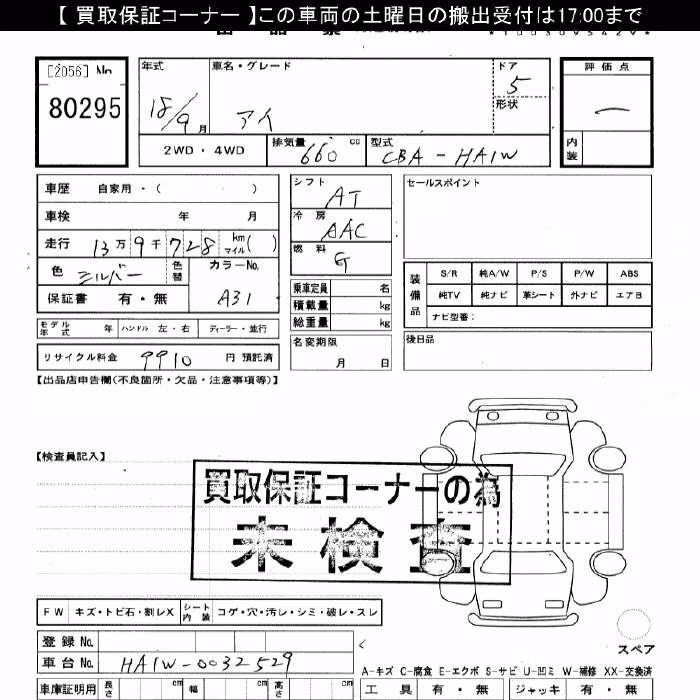 【 買取保証コーナー 】この車両の土曜日の搬出受付は17:00まで
[2056] No
80295
年式 車名・グレード ドア 評価点
18/9月 アイ 5 —
形状
2WD・4WD 排気量 660 cc 型式 CBA-HA1W 内装
車歴 自家用・( )
車検 年 月
走行 13万9千728 km マイル( )
色 シルバー 色替 カラーNo. A31
保証書 有・無
シフト AT
冷房 AAC
燃料 G
乗車定員 名
積載量 kg
総重量 kg
セールスポイント
装備品 S/R 純A/W P/S P/W ABS
純TV 純ナビ 革シート 外ナビ エアB
ナビ型番:
モデル年式 年 ハンドル 左・右 ディーラー・並行
名変期限 月 日
後日品
リサイクル料金 9910 円 預託済
【出品店申告欄(不良箇所・欠品・注意事項等)】
【検査員記入】
買取保証コーナーの為
未検査
FW キズ・トビ石・割レX シート内装 コゲ・穴・汚レ・シミ・破レ・スレ
登録No.
車台No. HA1W-0032529
スペア
A-キズ C-腐食 E-エクボ S-サビ U-凹ミ W-補修 XX-交換済
車庫証明用 長さ cm 幅 cm 高さ cm 工具 有・無 ジャッキ 有・無